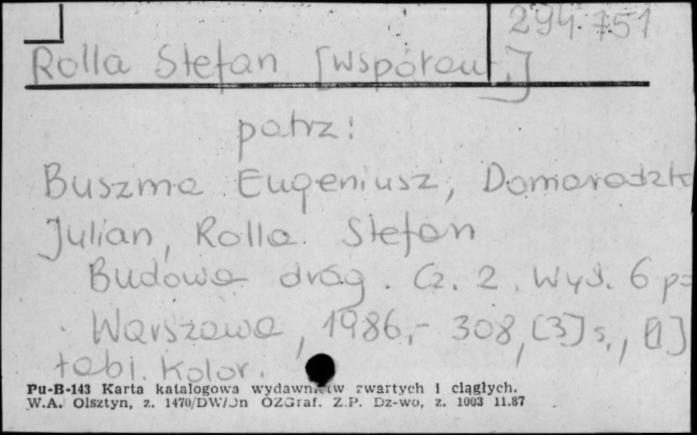 294.751
Rolla Stefan [współaut.]
patrz:
Buszma Eugeniusz, Domaradzk
Julian, Rolla Stefan
Budowa dróg. Cz. 2. Wyd. 6 po
Warszawa, 1986.- 308, [3] s., [1]
tabl. kolor.
Pu-B-143 Karta katalogowa wydawnictw zwartych i ciągłych.
W.A. Olsztyn, z. 1470/DW/Jn OZGraf. Z.P. Dz-wo, z. 1003 11.87